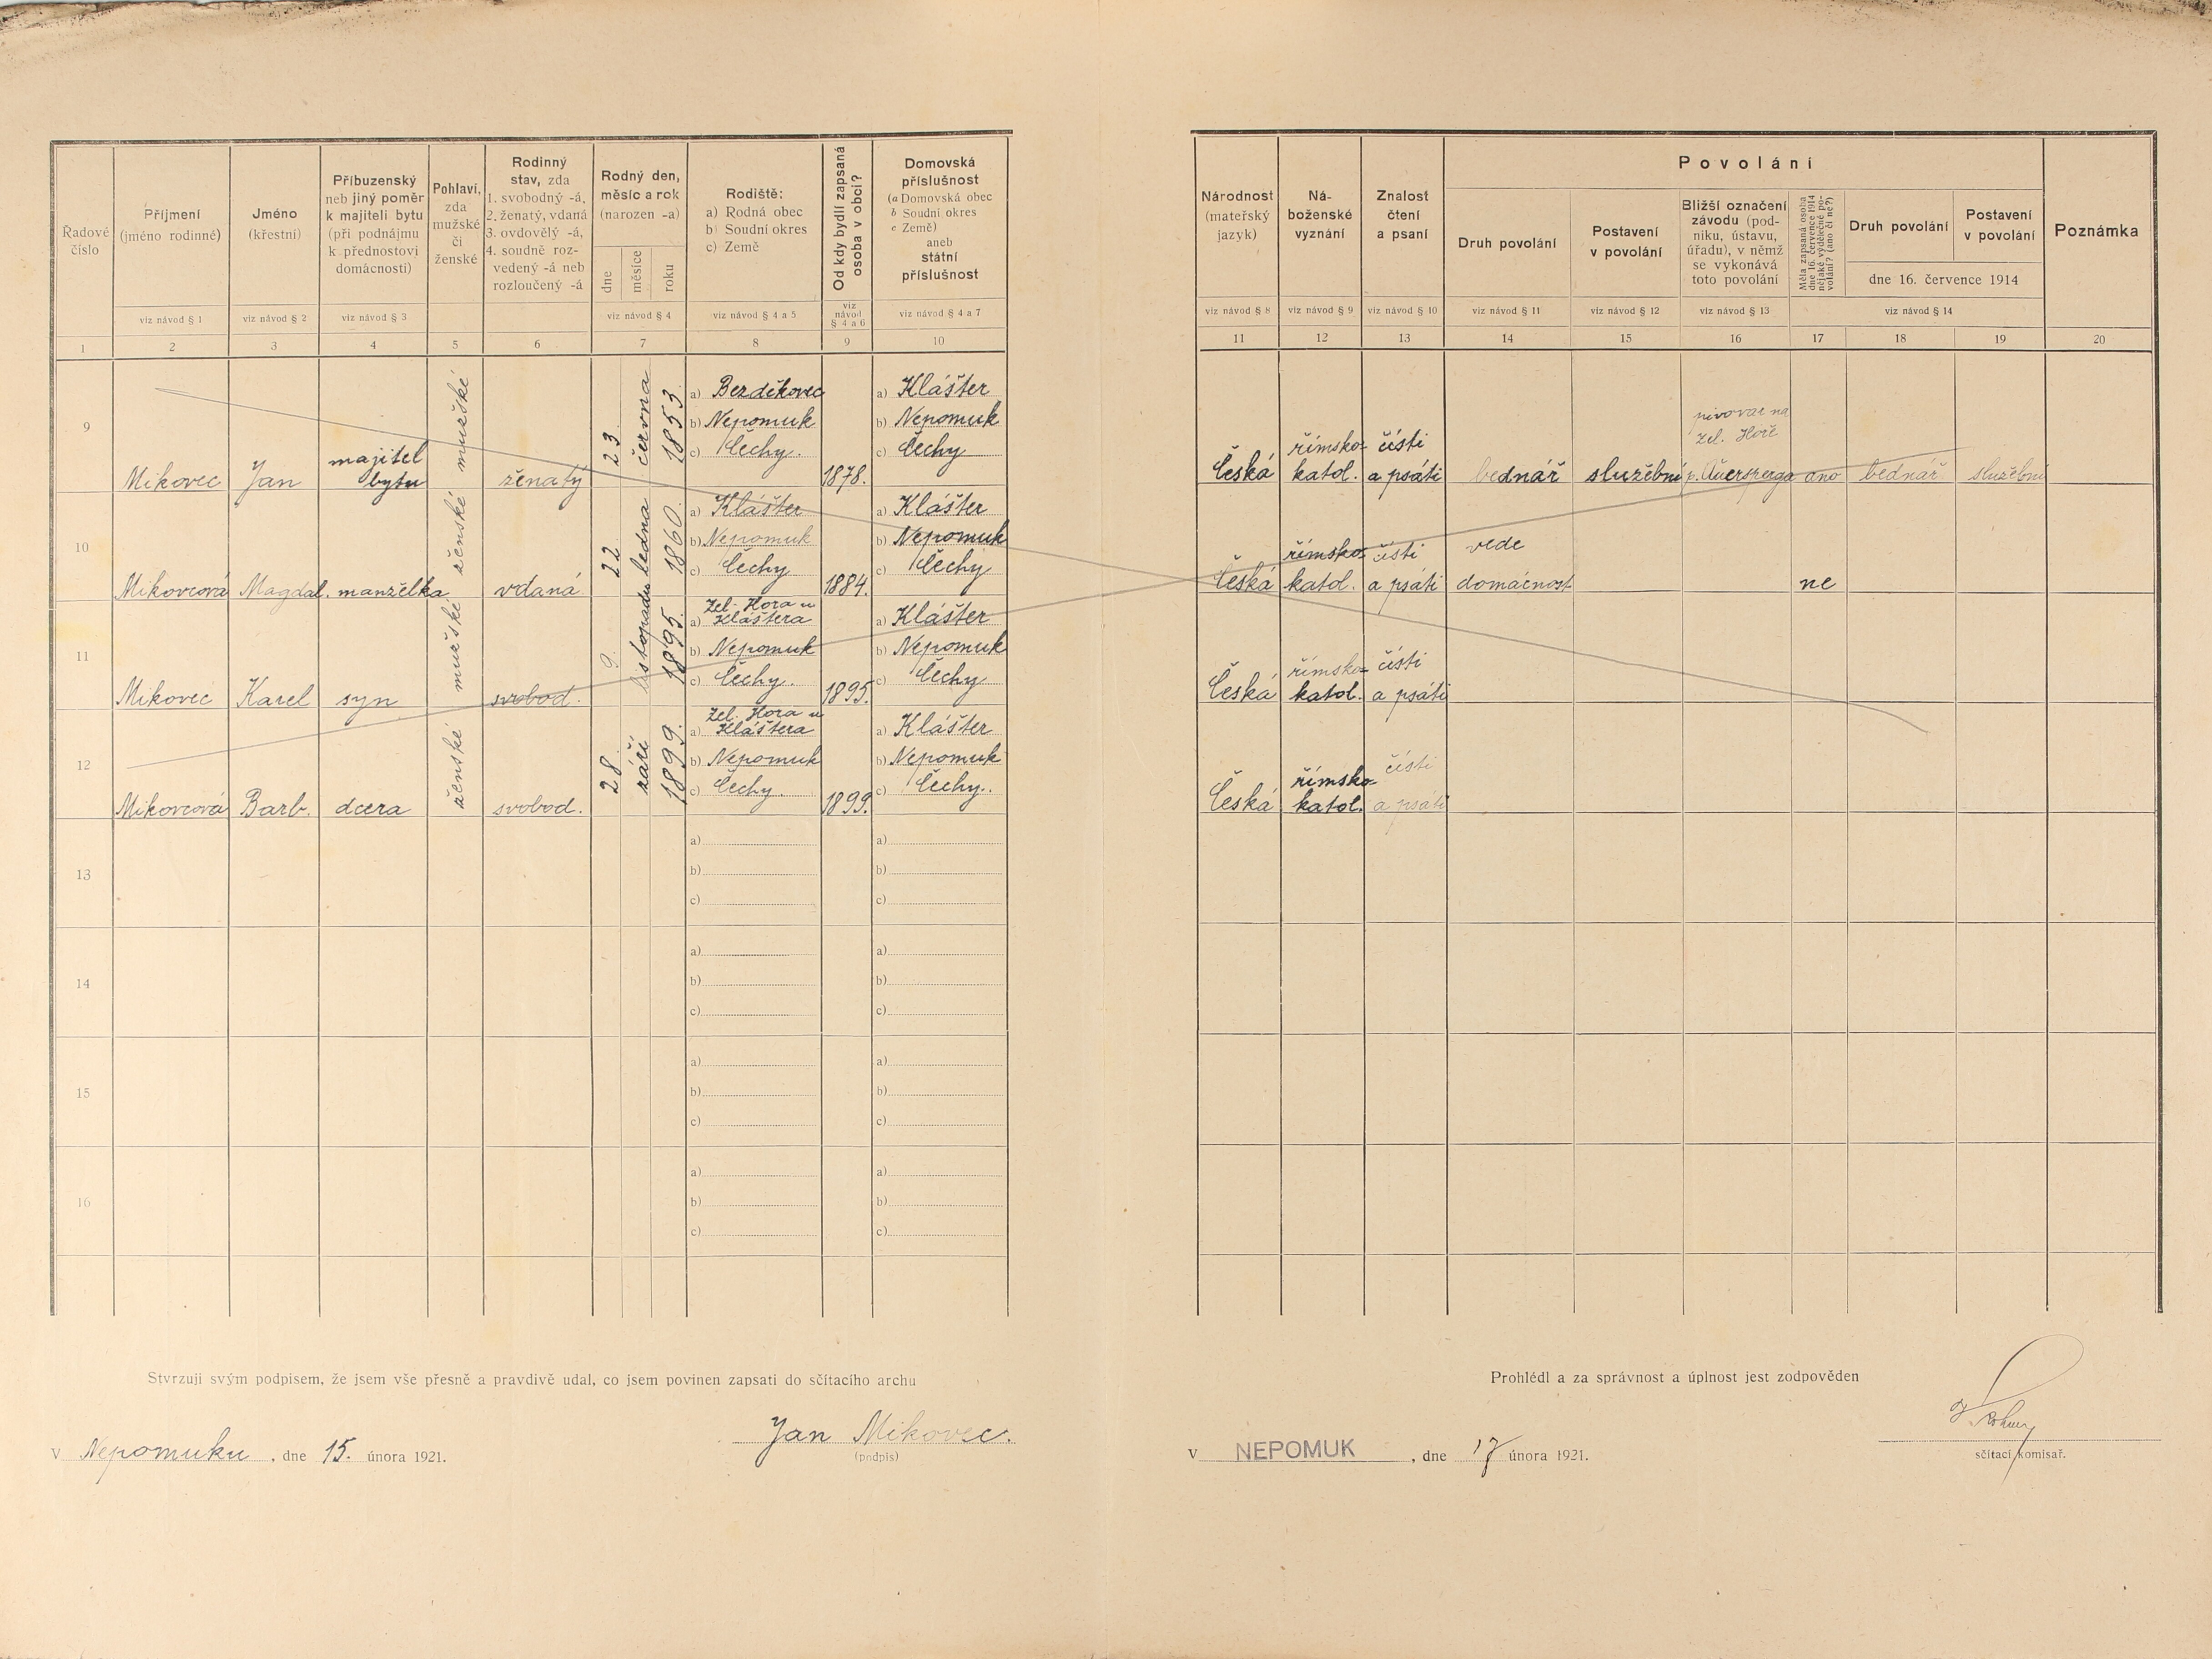 Řadové číslo
Příjmení (jméno rodinné)
Jméno (křestní)
Příbuzenský neb jiný poměr k majiteli bytu (při podnájmu k přednostovi domácnosti)
Pohlaví, zda mužské či ženské
Rodinný stav, zda 1. svobodný -á, 2. ženatý, vdaná 3. ovdovělý -á, 4. soudně roz- vedený -á neb rozloučený -á
Rodný den, měsíc a rok (narozen -a)
dne měsíce roku
Rodiště: a) Rodná obec b) Soudní okres c) Země
Od kdy bydlí zapsaná osoba v obci?
Domovská příslušnost (a Domovská obec b Soudní okres c Země) aneb státní příslušnost
viz návod § 1 viz návod § 2 viz návod § 3 viz návod § 4 viz návod § 4 a 5 viz návod § 4 a 6 viz návod § 4 a 7
1 2 3 4 5 6 7 8 9 10
9 Mikovec Jan majitel bytu mužské ženatý 23 června 1853. a) Bezděkovec b) Nepomuk c) Čechy. 1878. a) Klášter b) Nepomuk c) Čechy
10 Mikovcová Magdal. manželka ženské vdaná 22 ledna 1860. a) Klášter b) Nepomuk c) Čechy 1884. a) Klášter b) Nepomuk c) Čechy
11 Mikovec Karel syn mužské svobod. 9. listopadu 1895. a) Zel. Hora u Kláštera b) Nepomuk c) Čechy. 1895. a) Klášter b) Nepomuk c) Čechy
12 Mikovcová Barb. dcera ženské svobod. 28. září 1899. a) Zel. Hora u Kláštera b) Nepomuk c) Čechy. 1899. a) Klášter b) Nepomuk c) Čechy.
13 a) b) c) a) b) c)
14 a) b) c) a) b) c)
15 a) b) c) a) b) c)
16 a) b) c) a) b) c)
Stvrzuji svým podpisem, že jsem vše přesně a pravdivě udal, co jsem povinen zapsati do sčítacího archu
V Nepomuku , dne 15. února 1921.
Jan Mikovec.
(podpis)
Národnost (mateřský jazyk)
Ná- boženské vyznání
Znalost čtení a psaní
Povolání
Druh povolání
Postavení v povolání
Bližší označení závodu (pod- niku, ústavu, úřadu), v němž se vykonává toto povolání
Měla zapsaná osoba dne 16. července 1914 nějaké výdělečné po- volání? (ano či ne?)
Druh povolání
Postavení v povolání
dne 16. července 1914
Poznámka
viz návod § 8 viz návod § 9 viz návod § 10 viz návod § 11 viz návod § 12 viz návod § 13 viz návod § 14
11 12 13 14 15 16 17 18 19 20
Česká římsko- katol. čísti a psáti bednář služební pivovar na Zel. Hoře p. Auersperga ano bednář služební
Česká římsko- katol. čísti a psáti vede domácnost ne
Česká římsko- katol. čísti a psáti
Česká římsko- katol. čísti a psáti
Prohlédl a za správnost a úplnost jest zodpověden
V NEPOMUK , dne 17 února 1921.
sčítací komisař.